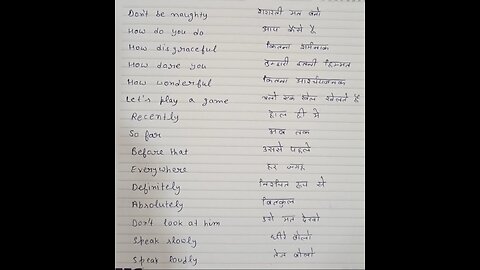 Don't be naughty शरारती मत बनो
How do you do आप कैसे है
How disgraceful कितना शर्मनाक
How dare you तुम्हारी इतनी हिम्मत
How wonderful कितना आश्चर्यजनक
Let's play a game चलो एक खेल खेलते है
Recently हाल ही मे
So far अब तक
Before that उससे पहले
Everywhere हर जगह
Definitely निश्चित रूप से
Absolutely बिलकुल
Don't look at him उसे मत देखो
Speak slowly धीरे बोलो
Speak loudly तेज बोलो